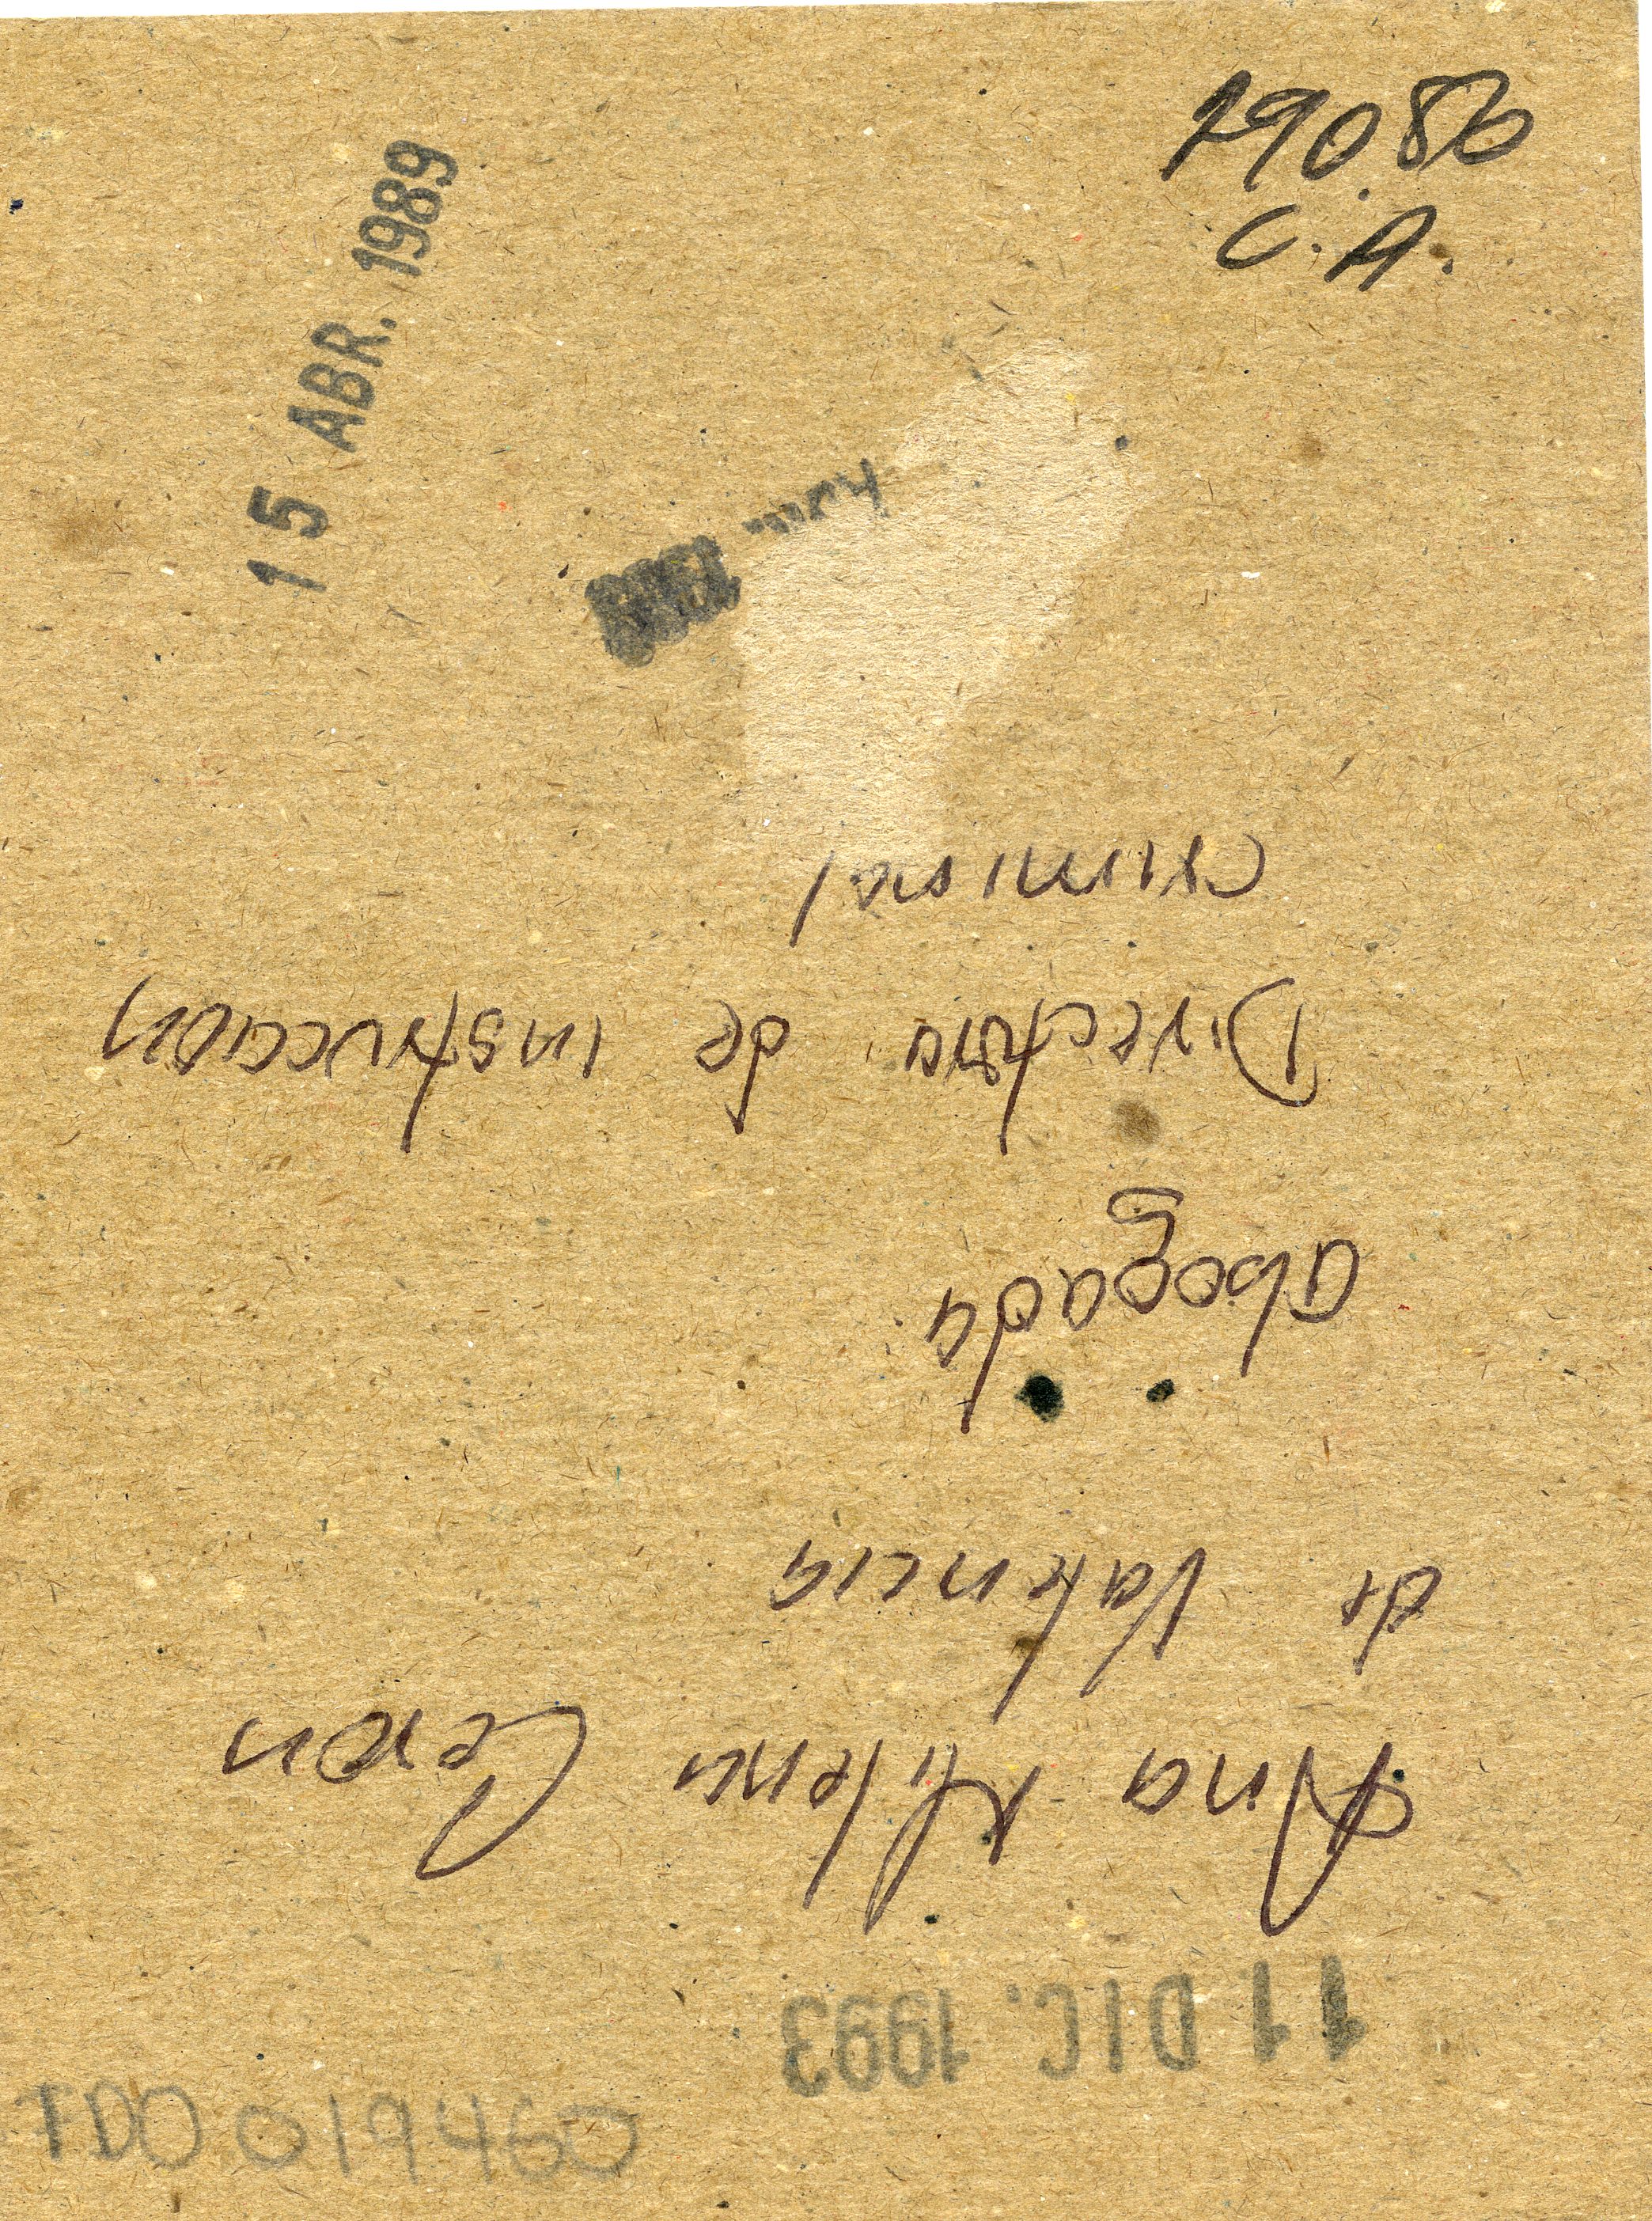 C.A.
15 ABR. 1989
11 DIC. 1993
Ana Milena Ceron
de Valencia
abogada
Directora de instruccion
criminal
019460